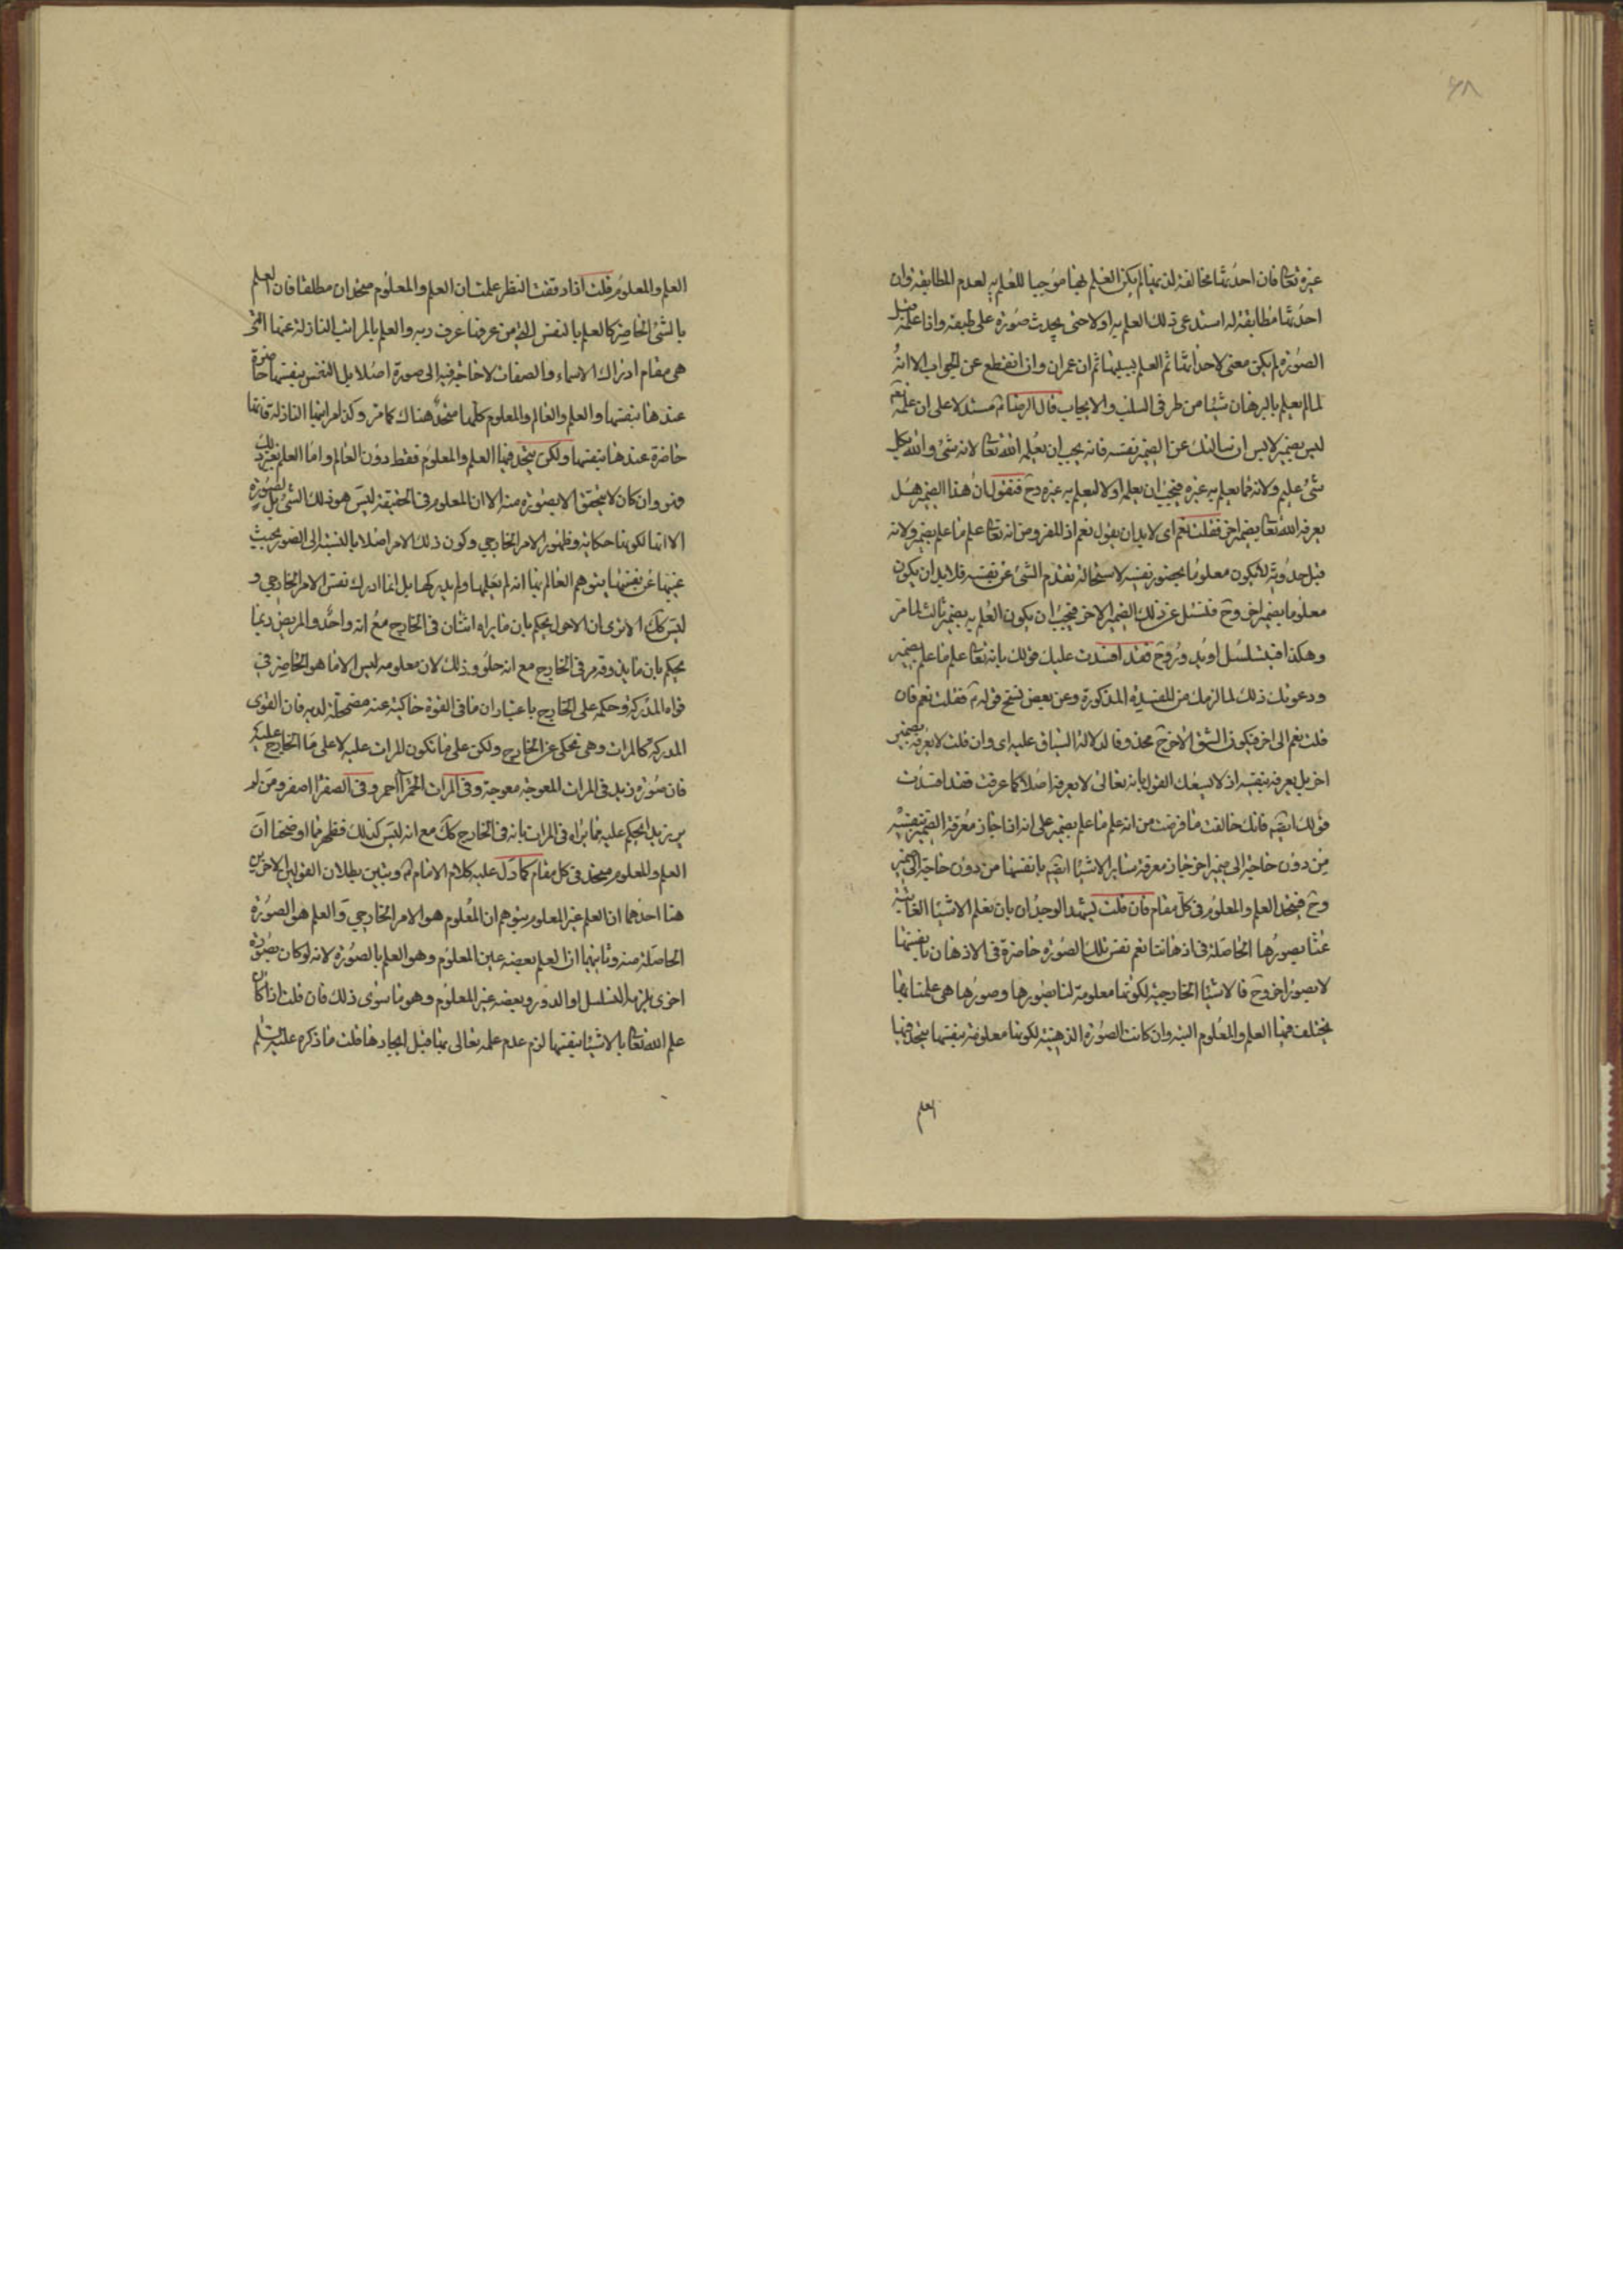 ٤٨
غيره تعالى فان احدثها مخالفة لذ لم يكن العلم بها موجبا للعلم به لعدم المطابقة وان
احدثها مطابقة له استدعى ذلك العلم به اولا حتى يحدث صورة على طبقه واذا علمه قبل
الصورة لم يكن معنى لاحداثها ثم العلم بسببها ثم ان عمران وان انقطع عن الجواب الا انه
لما لم يعلم بالبرهان شيئا من طرفى السلب والايجاب قال الرضا مستدلا على ان علمه
ليس بضمير لابس ان سالتك عن الضمير نفسه فانه يجب ان يعلمه الله تعالى لانه شئ والله بكل
شئ عليم ولانه مما يعلم به غيره فيجب ان يعلمه اولا ليعلم به غيره وح فنقول ان هذا الضمير هل
يعرفه الله تعالى بضمير اخر فقلت نعم اى لابد ان يقول نعم اذ المفروض انه تعالى علم ما علم بضمير ولانه
قبل حدوثه لا يكون معلوما بحضور نفسه لاستحالة تقدم الشئ عن نفسه فلابد ان يكون
معلوما بضمير اخر وح فنسئل عن ذلك الضمير الاخر فيجب ان يكون العلم به بضمير ثالث لما مر
وهكذا فيتسلسل او يدور وح فقد افسدت عليك قولك بانه تعالى علم ما علم بضمير
ودعويك ذلك لما لزمك من المفسدة المذكورة وعن بعض نسخ قوله فقلت نعم فان
قلت نعم الى اخر فيكون الشق الاخر ح محذوفا لدلالة السياق عليه اى وان قلت لا يعرفه بضمير
اخر بل يعرفه بنفسه اذ لا يسعك القول بانه تعالى لا يعرفه اصلا كما عرفت فقد افسدت
قولك ايضا فانك خالفت ما فرضت من انه علم ما علم بضمير على انه اذا جاز معرفة الضمير بنفسه
من دون حاجة الى ضمير اخر جاز معرفة سائر الاشياء ايضا بانفسها من دون حاجة الى ضمير
وح فيتحد العلم والمعلوم فى كل مقام فان قلت يشهد الوجدان بان نعلم الاشياء الغائبة
عنا بصورها الحاصلة فى اذهاننا نعم نفس تلك الصورة حاضرة فى الاذهان بانفسها
لا بصور اخر وح فالاشياء الخارجية لكونها معلومة لنا بصورها وصورها هى علمنا بها
يختلف فيها العلم والمعلوم البتة وان كانت الصورة الذهنية لكونها معلومة بنفسها يتحد فيها
العلم
العلم والمعلوم قلت اذا دققت النظر علمت ان العلم والمعلوم متحدان مطلقا فان العلم
بالشئ الحاضر كالعلم بالنفس التى من عرفها عرف ربه والعلم بالمراتب النازلة عنها التى
هى مقام ادراك الاسماء والصفات لا حاجة فيه الى صورة اصلا بل النفس بنفسها حاضرة
عندها بنفسها والعلم والعالم والمعلوم كلها متحد هناك كما مر وكذا مراتبها النازلة فانها
حاضرة عندها بنفسها ولكن يتحد فيها العلم والمعلوم فقط دون العالم واما العلم بغير ذلك
فهو وان كان لا يتحقق الا بصورة منه الا ان المعلوم فى الحقيقة ليس هو ذلك الشئ بل الصورة
الا انها لكونها حكاية وظهور الامر الخارجى وكون ذلك الامر اصلا بالنسبة الى الصور بحيث
غيبها عن نفسها يتوهم العالم بها انه لم يعلمها ولم يدركها بل انما ادرك نفس الامر الخارجى و
ليس كك الا ترى ان الاحول يحكم بان ما يراه اثنان فى الخارج مع انه واحد والمريض ربما
يحكم بان ما يذوقه مر فى الخارج مع انه حلو وذلك لان معلومه ليس الا ما هو الحاضر فى
قواه المدركة وحكمه على الخارج باعتبار ان ما فى القوة حاكية عنه مضمحلة لديه فان القوى
المدركة كالمرات وهى تحكى عن الخارج ولكن على ما تكون المرات عليه لا على ما الخارج عليه
فان صورة زيد فى المرات المعوجة معوجة وفى المرات الحمرا احمر وفى الصفرا اصفر ومن لم
ير زيد يحكم عليه بما يراه فى المرات بانه فى الخارج كك مع انه ليس كذلك فظهر مما اوضحنا ان
العلم والمعلوم متحد فى كل مقام كما دل عليه كلام الامام وتبين بطلان القولين الاخرين
هنا احدهما ان العلم غير المعلوم بتوهم ان المعلوم هو الامر الخارجى والعلم هو الصورة
الحاصلة منه وثانيهما ان العلم بعضه عين المعلوم وهو العلم بالصورة لانه لو كان بصورة
اخرى يلزم التسلسل او الدور وبعضه غير المعلوم وهو ما سوى ذلك فان قلت اذا كان
علم الله تعالى بالاشياء بنفسها لزم عدم علمه تعالى بها قبل ايجادها قلت ما ذكره عليه السلم